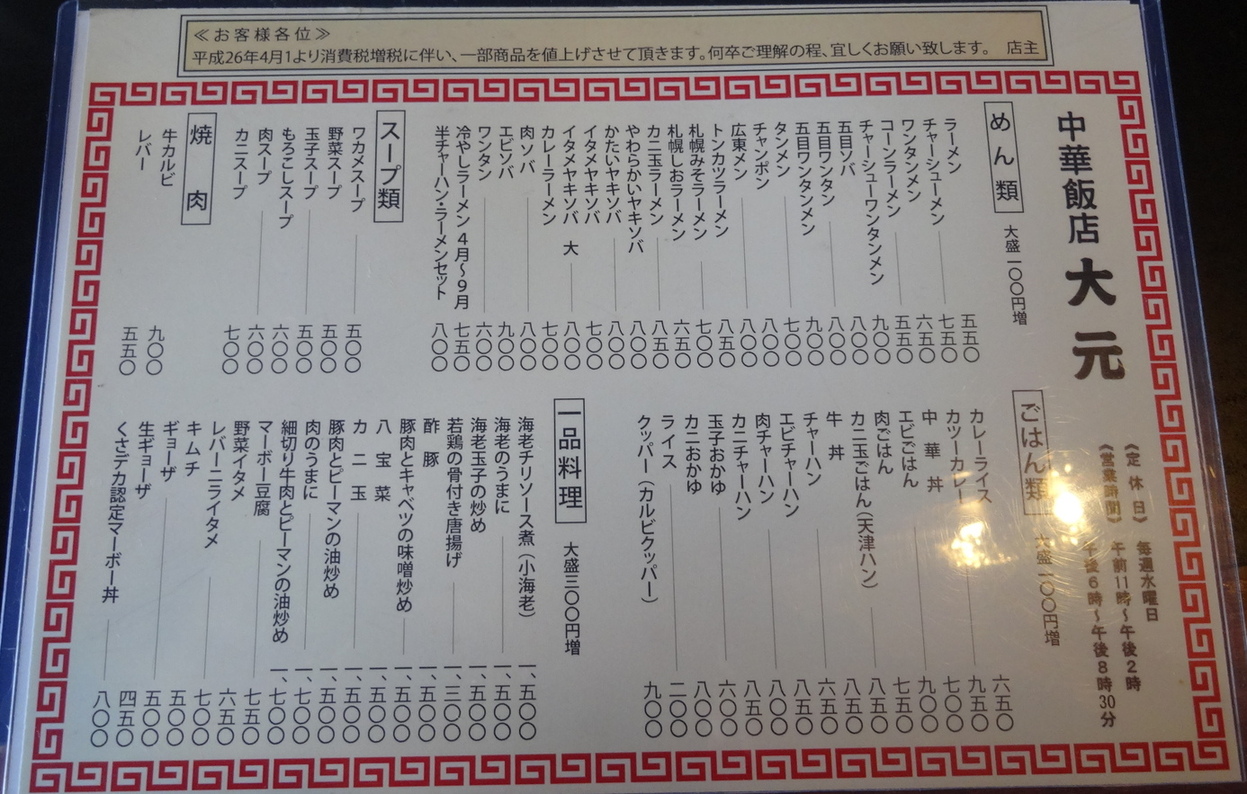 ≪お客様各位≫
平成26年4月1より消費税増税に伴い、一部商品を値上げさせて頂きます。何卒ご理解の程、宜しくお願い致します。 店主
中華飯店 大元
《定休日》 毎週水曜日
《営業時間》 午前11時～午後2時
午後6時～午後8時30分
めん類 大盛一〇〇円増
ラーメン 五五〇
チャーシューメン 七五〇
ワンタンメン 六五〇
コーンラーメン 五五〇
チャーシューワンタンメン 九〇〇
五目ソバ 八〇〇
五目ワンタン 八〇〇
五目ワンタンメン 九〇〇
タンメン 七〇〇
チャンポン 八〇〇
広東メン 八〇〇
トンカツラーメン 八五〇
札幌みそラーメン 七〇〇
札幌しおラーメン 六五〇
カニ玉ラーメン 八五〇
やわらかいヤキソバ 八〇〇
かたいヤキソバ 八〇〇
イタメヤキソバ 七〇〇
イタメヤキソバ 大 八〇〇
カレーラーメン 七〇〇
肉ソバ 八〇〇
エビソバ 九〇〇
ワンタン 六〇〇
冷やしラーメン 4月～9月 七五〇
半チャーハン・ラーメンセット 八〇〇
スープ類
ワカメスープ 五〇〇
野菜スープ 五〇〇
玉子スープ 五〇〇
もろこしスープ 六〇〇
肉スープ 六〇〇
カニスープ 七〇〇
焼肉
牛カルビ 九〇〇
レバー 五五〇
ごはん類 大盛一〇〇円増
カレーライス 六五〇
カツーカレー 九五〇
中華丼 七〇〇
エビごはん 九〇〇
肉ごはん 七五〇
カニ玉ごはん(天津ハン) 八五〇
牛丼 八五〇
チャーハン 六五〇
エビチャーハン 八五〇
肉チャーハン 八〇〇
カニチャーハン 八五〇
玉子おかゆ 六〇〇
カニおかゆ 八〇〇
ライス 二〇〇
クッパー(カルビクッパー) 九〇〇
一品料理 大盛三〇〇円増
海老チリソース煮(小海老) 一、五〇〇
海老のうまに 一、五〇〇
海老玉子の炒め 一、五〇〇
若鶏の骨付き唐揚げ 一、三〇〇
酢豚 一、五〇〇
豚肉とキャベツの味噌炒め 一、五〇〇
八宝菜 一、五〇〇
カニ玉 一、五〇〇
豚肉とピーマンの油炒め 一、五〇〇
肉のうまに 一、七〇〇
細切り牛肉とピーマンの油炒め 一、七〇〇
マーボー豆腐 七五〇
野菜イタメ 六五〇
レバーニライタメ 七〇〇
キムチ 五〇〇
ギョーザ 五〇〇
生ギョーザ 四五〇
くさデカ認定マーボー丼 八〇〇